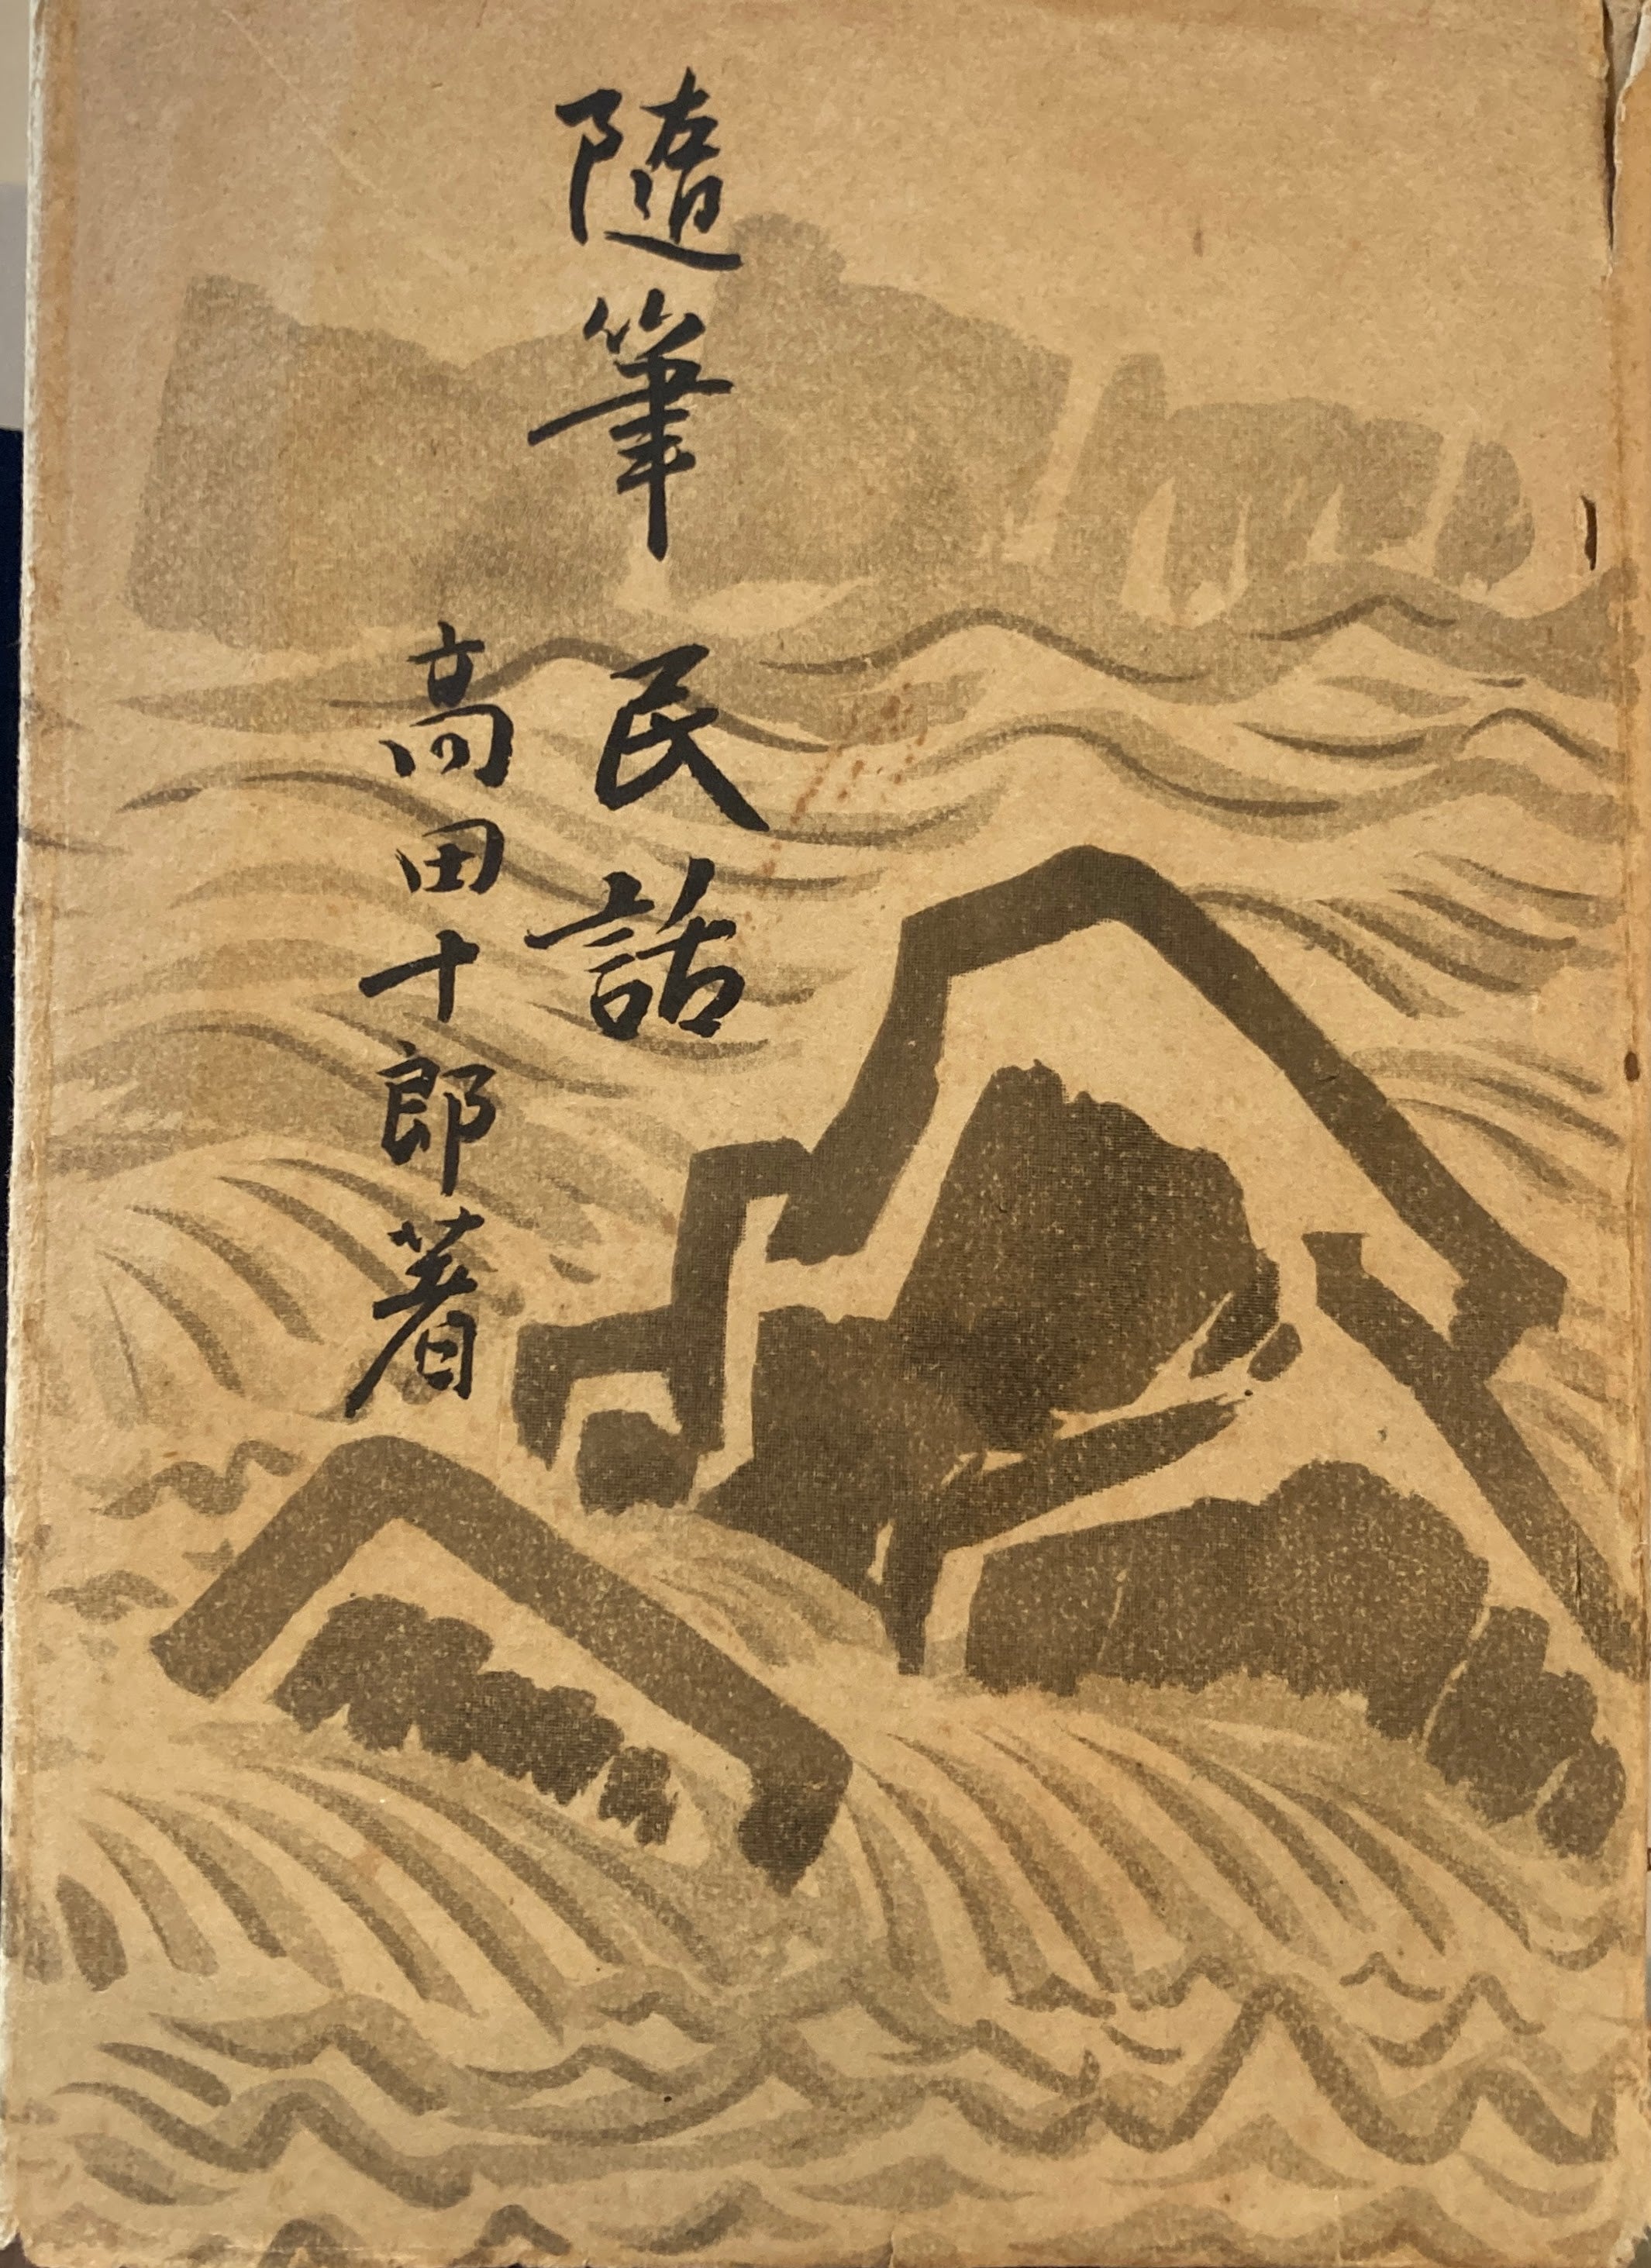 隨筆 民話
高田十郎著